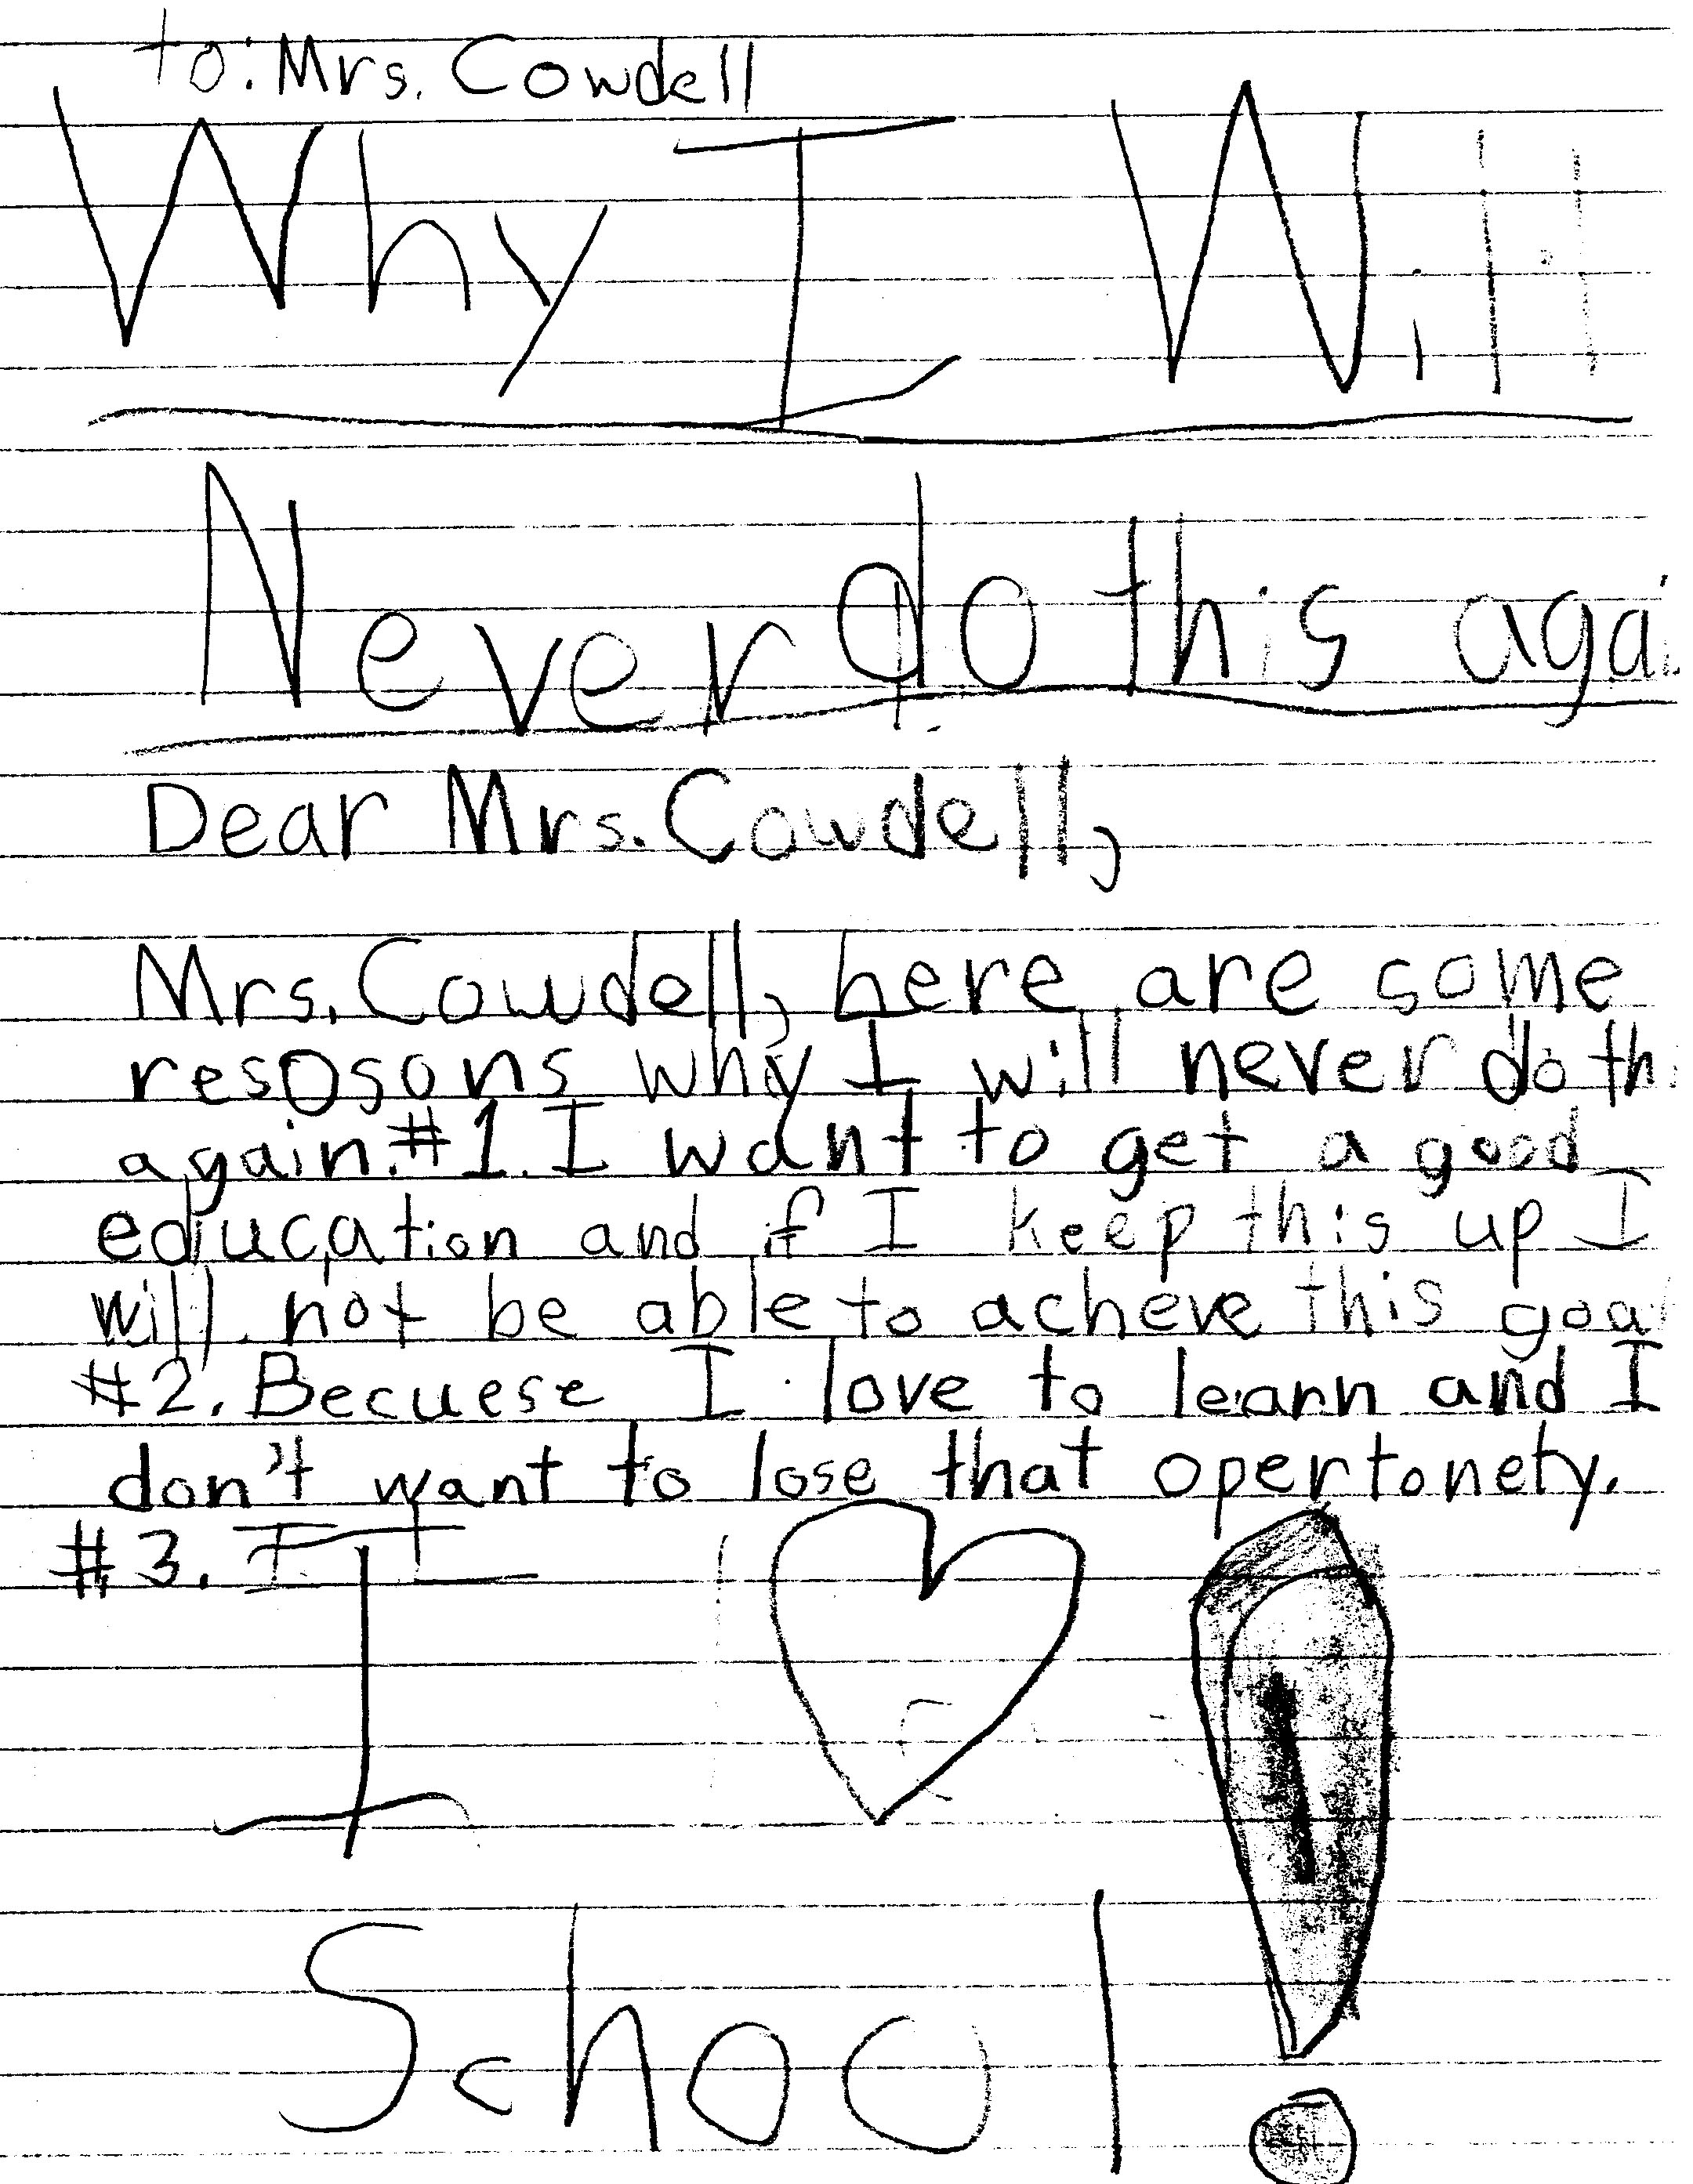 to: Mrs. Cowdell
Why I Will
Never do this agai
Dear Mrs. Cowdell,
Mrs. Cowdell, here are some
resosons why I will never do th
again. #1. I want to get a good
education and if I keep this up I
will not be able to acheve this goal
#2. Becuese I love to learn and I
don't want to lose that opertonety.
#3. I ♥
School!